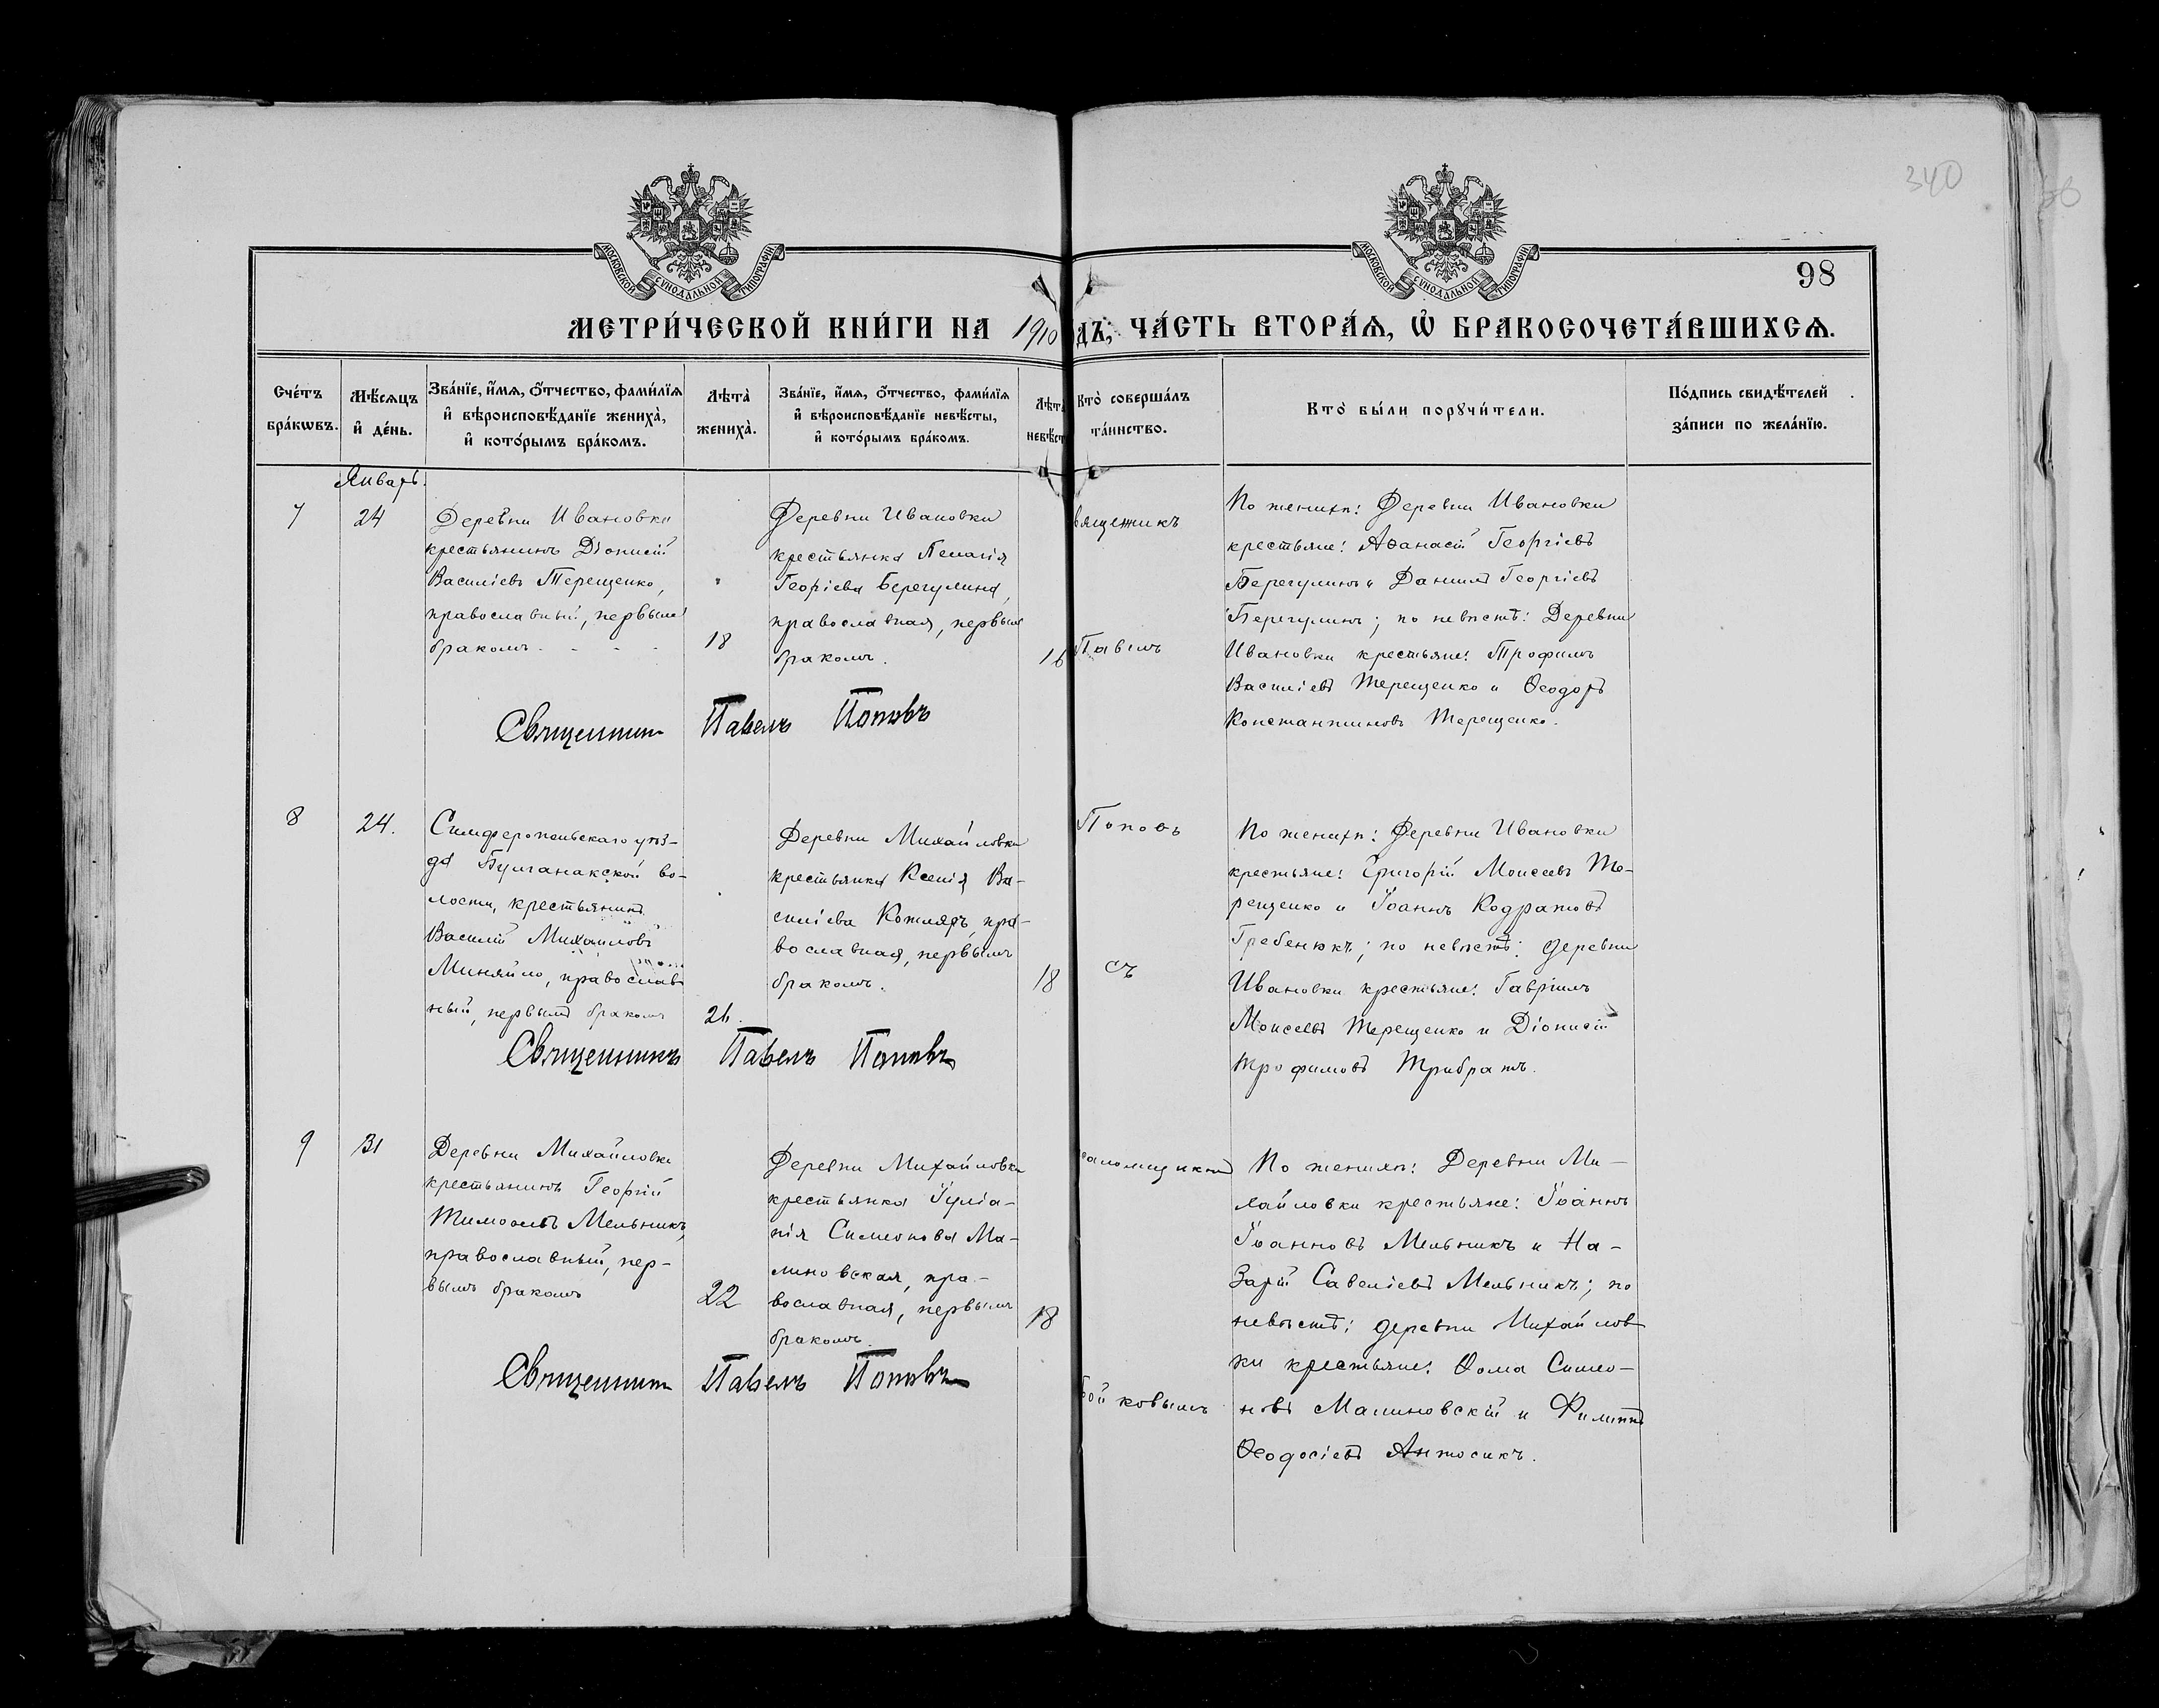 340
98
МОСКОВСКОЙ СѴНОДАЛЬНОЙ ТИПОГРАФІИ
МОСКОВСКОЙ СѴНОДАЛЬНОЙ ТИПОГРАФІИ
МЕТРИ́ЧЕСКОЙ КНИ́ГИ НА 1910 ДЪ, ЧА́СТЬ ВТОРА́Ѧ, Ѽ БРАКОСОЧЕТА́ВШИХСѦ.
Сче́тъ бра́кѡвъ.
Мѣ́сѧцъ и҆ де́нь.
Зва́нїе, и҆́мѧ, ѻ҆́тчество, фами́лїѧ и҆ вѣроисповѣ́данїе жениха̀, и҆ кото́рымъ бра́комъ.
Лѣта̀ жениха̀.
Зва́нїе, и҆́мѧ, ѻ҆́тчество, фами́лїѧ и҆ вѣроисповѣ́данїе невѣ́сты, и҆ кото́рымъ бра́комъ.
Лѣта невѣст
Кто̀ соверша́лъ та́инство.
Кто̀ бы́ли порꙋчи́тели.
По́дпись свидѣ́телей за́писи по жела́нїю.
Январь.
7
24
Деревни Ивановки
крестьянинъ Діонисій
Василіевъ Терещенко,
православный, первымъ
бракомъ.
18
Деревни Ивановки
крестьянка Пелагія
Георгіева Берегулина,
православная, первымъ
бракомъ.
16
вященникъ
Павелъ
По женихѣ: Деревни Ивановки
крестьяне: Аѳанасій Георгіевъ
Берегулинъ и Даніилъ Георгіевъ
Берегулинъ; по невѣстѣ: Деревни
Ивановки крестьяне: Трофимъ
Василіевъ Терещенко и Ѳеодоръ
Константиновъ Терещенко.
Священникъ Павелъ Поповъ
8
24.
Симферопольскаго уѣз-
да Булганакской во-
лости, крестьянинъ
Василій Михайловъ
Миняйло, православ
ный, первымъ бракомъ
24.
Деревни Михайловки
крестьянка Ксенія Ва-
силіева Котляръ, пра-
вославная, первымъ
бракомъ.
18
Поповъ
съ
По женихѣ: Деревни Ивановки
крестьяне: Григорій Моисеевъ Те-
рещенко и Іоаннъ Кодратовъ
Гребенюкъ; по невѣстѣ: деревни
Ивановки крестьяне: Гавріилъ
Моисеевъ Терещенко и Діонисій
Трофимовъ Трибратъ.
Священникъ Павелъ Поповъ
9
31
Деревни Михайловки
крестьянинъ Георгій
Тимоѳеевъ Мельникъ,
православный, пер-
вымъ бракомъ
22
Деревни Михайловки
крестьянка Іуліа-
нія Симеонова Ма-
линовская, пра-
вославная, первымъ
бракомъ.
18
саломщикомъ
Бойковымъ
По женихѣ: Деревни Ми-
хайловки крестьяне: Іоаннъ
Іоанновъ Мельникъ и На-
зарій Савеліевъ Мельникъ; по
невѣстѣ: деревни Михайлов-
ки крестьяне: Ѳома Симео-
новъ Малиновскій и Филиппъ
Ѳеодосіевъ Антосикъ.
Священникъ Павелъ Поповъ